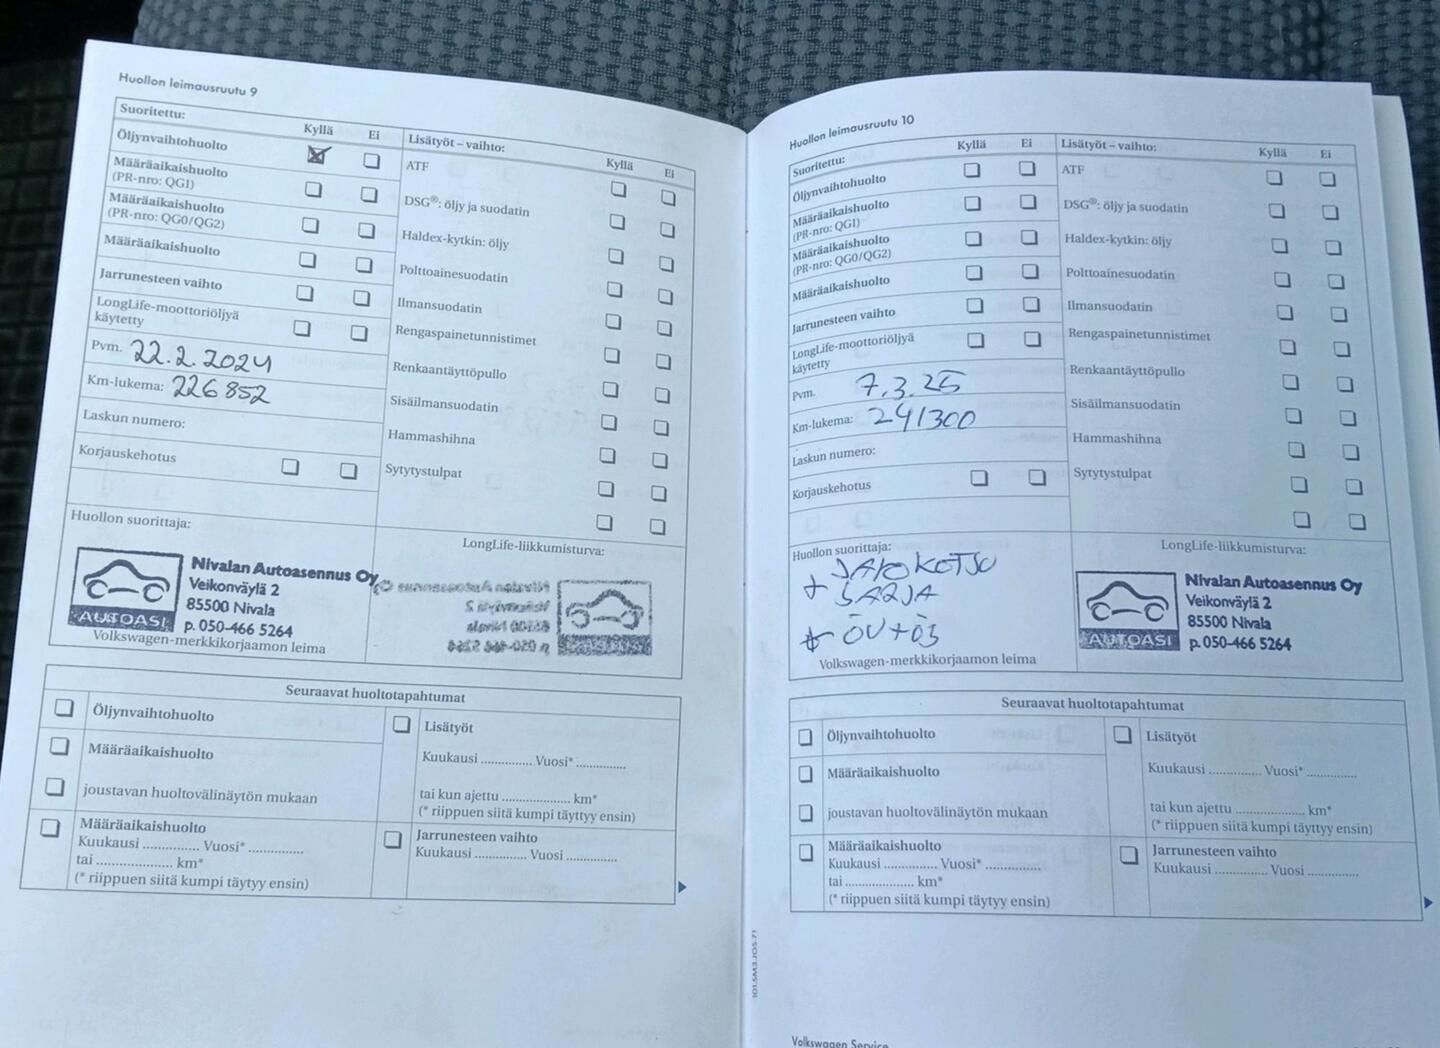 Huollon leimausruutu 9
Suoritettu: Kyllä Ei
Öljynvaihtohuolto
Määräaikaishuolto
(PR-nro: QG1)
Määräaikaishuolto
(PR-nro: QG0/QG2)
Määräaikaishuolto
Jarrunesteen vaihto
LongLife-moottoriöljyä
käytetty
Pvm. 22.2.2024
Km-lukema: 226852
Laskun numero:
Korjauskehotus
Lisätyöt – vaihto: Kyllä Ei
ATF
DSG®: öljy ja suodatin
Haldex-kytkin: öljy
Polttoainesuodatin
Ilmansuodatin
Rengaspainetunnistimet
Renkaantäyttöpullo
Sisäilmansuodatin
Hammashihna
Sytytystulpat
Huollon suorittaja:
Nivalan Autoasennus Oy
Veikonväylä 2
85500 Nivala
p. 050-466 5264
AUTOASI
Volkswagen-merkkikorjaamon leima
LongLife-liikkumisturva:
Nivalan Autoasennus Oy
Veikonväylä 2
85500 Nivala
p. 050-466 5264
Seuraavat huoltotapahtumat
Öljynvaihtohuolto
Määräaikaishuolto
joustavan huoltovälinäytön mukaan
Määräaikaishuolto
Kuukausi ............... Vuosi* ...............
tai .................... km*
(* riippuen siitä kumpi täytyy ensin)
Lisätyöt
Kuukausi ............... Vuosi* ...............
tai kun ajettu .................... km*
(* riippuen siitä kumpi täyttyy ensin)
Jarrunesteen vaihto
Kuukausi ............... Vuosi ...............
Huollon leimausruutu 10
Suoritettu: Kyllä Ei
Öljynvaihtohuolto
Määräaikaishuolto
(PR-nro: QG1)
Määräaikaishuolto
(PR-nro: QG0/QG2)
Määräaikaishuolto
Jarrunesteen vaihto
LongLife-moottoriöljyä
käytetty
Pvm. 7.3.25
Km-lukema: 241300
Laskun numero:
Korjauskehotus
Lisätyöt – vaihto: Kyllä Ei
ATF
DSG®: öljy ja suodatin
Haldex-kytkin: öljy
Polttoainesuodatin
Ilmansuodatin
Rengaspainetunnistimet
Renkaantäyttöpullo
Sisäilmansuodatin
Hammashihna
Sytytystulpat
Huollon suorittaja:
JAKOKETJU
+ SARJA
+ ÖV+ÖS
Volkswagen-merkkikorjaamon leima
LongLife-liikkumisturva:
Nivalan Autoasennus Oy
Veikonväylä 2
85500 Nivala
p. 050-466 5264
AUTOASI
Seuraavat huoltotapahtumat
Öljynvaihtohuolto
Määräaikaishuolto
joustavan huoltovälinäytön mukaan
Määräaikaishuolto
Kuukausi ............... Vuosi* ...............
tai .................... km*
(* riippuen siitä kumpi täytyy ensin)
Lisätyöt
Kuukausi ............... Vuosi* ...............
tai kun ajettu .................... km*
(* riippuen siitä kumpi täyttyy ensin)
Jarrunesteen vaihto
Kuukausi ............... Vuosi ...............
Volkswagen Service